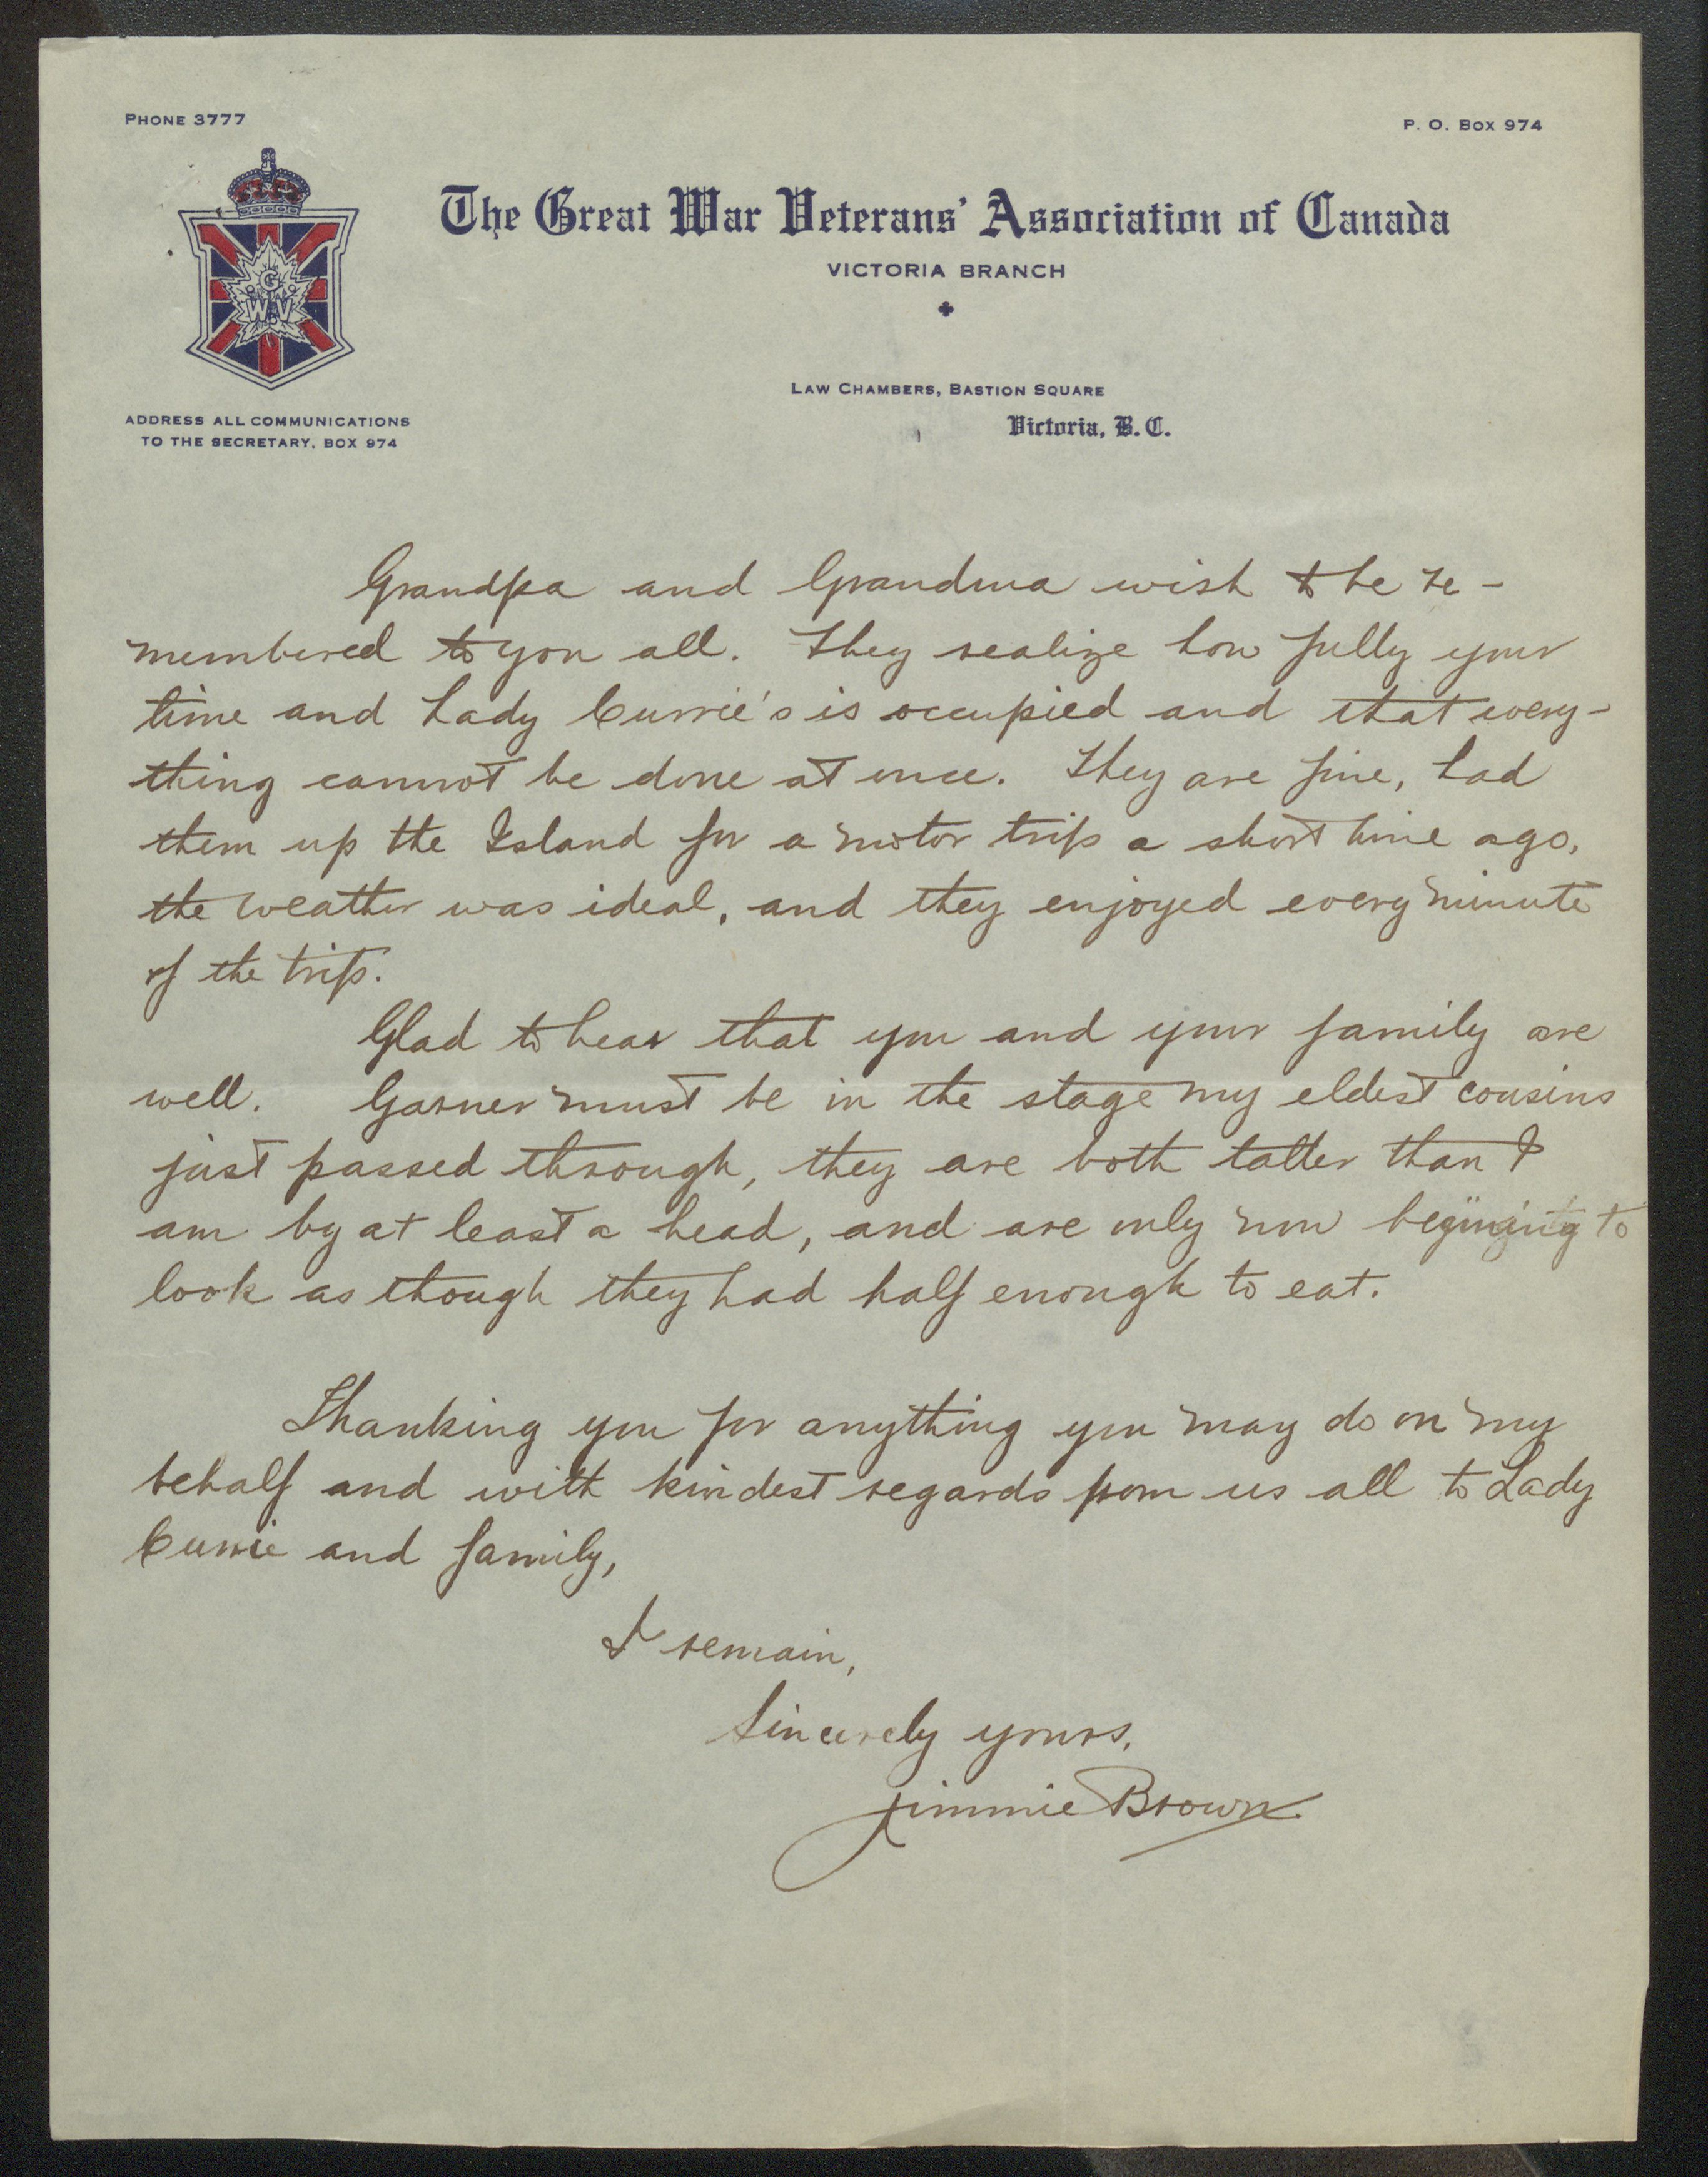 PHONE 3777
P. O. BOX 974
The Great War Veterans' Association of Canada
VICTORIA BRANCH
G.
W.V.
LAW CHAMBERS, BASTION SQUARE
Victoria, B.C.
ADDRESS ALL COMMUNICATIONS
TO THE SECRETARY, BOX 974
Grandpa and Grandma wish to be re-
membered to you all. They realize how fully your
time and Lady Currie's is occupied and that every-
thing cannot be done at once. They are fine, had
them up the Island for a motor trip a short time ago,
the weather was ideal, and they enjoyed every minute
of the trip.
Glad to hear that you and your family are
well. Garner must be in the stage my eldest cousins
just passed through, they are both taller than I
am by at least a head, and are only now begining to
look as though they had half enough to eat.
Thanking you for anything you may do on my
behalf and with kindest regards from us all to Lady
Currie and family,
I remain,
Sincerely yours,
Jimmie Brown